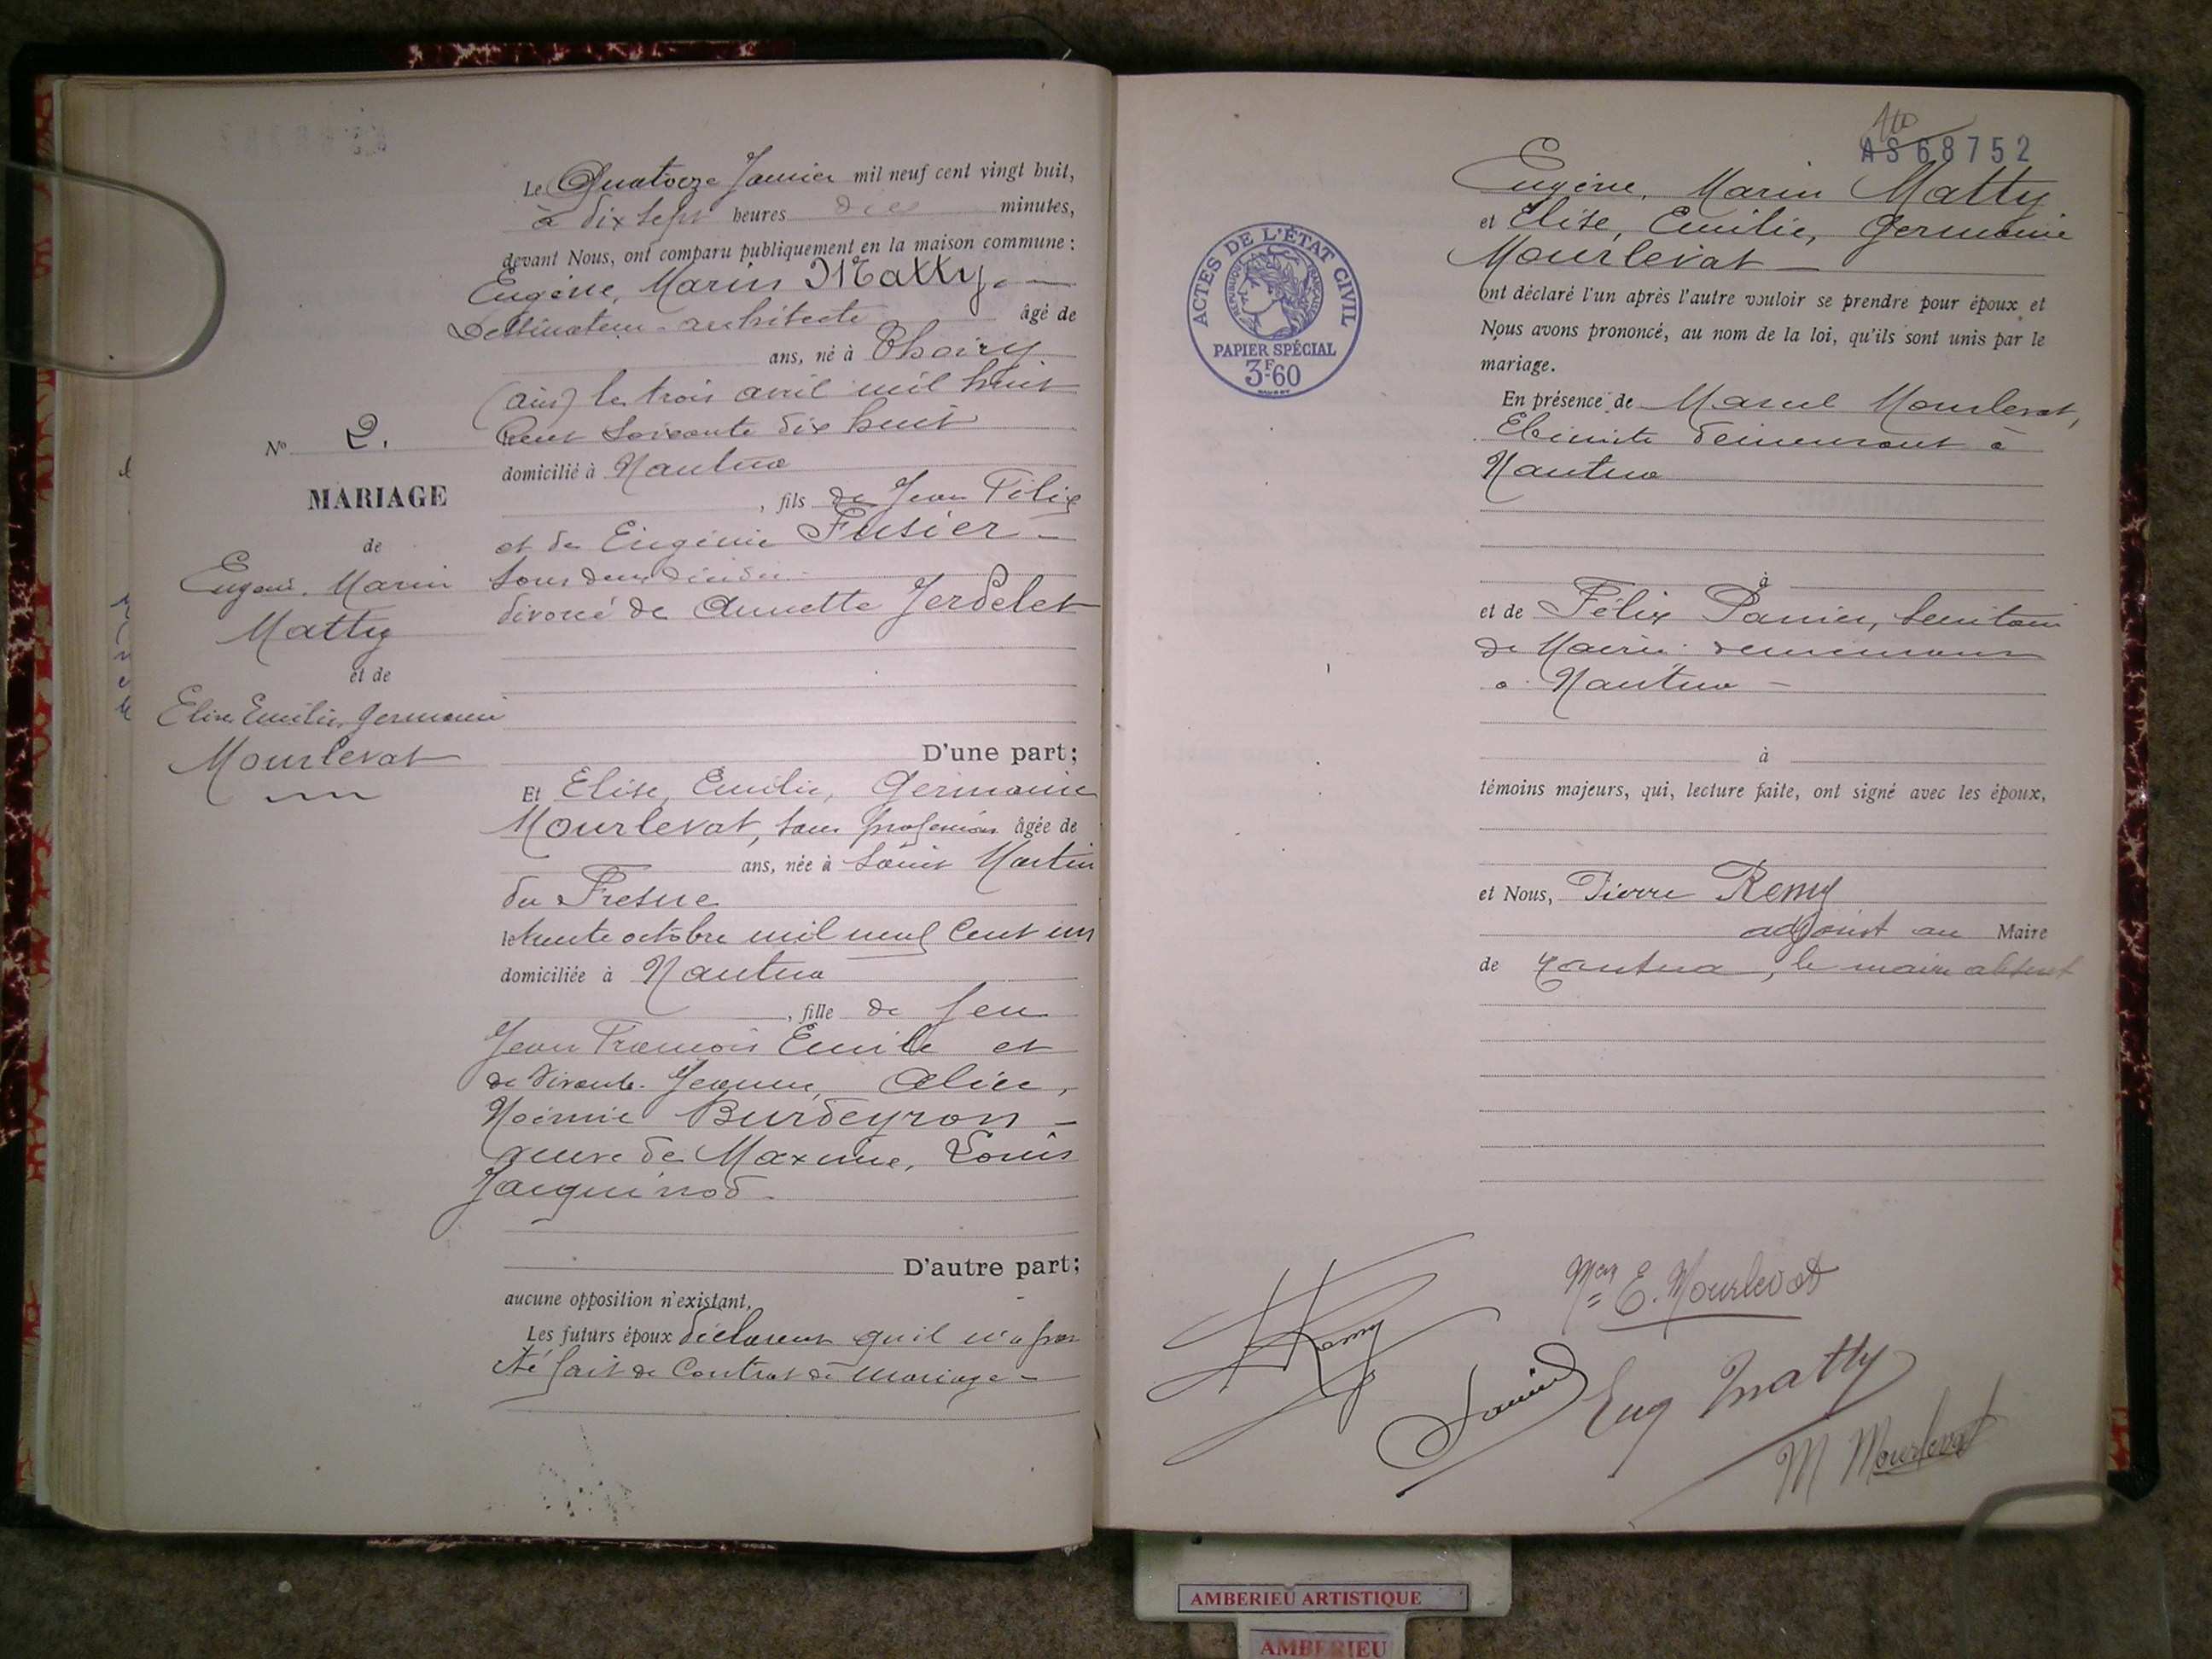 Le Quatorze Janvier mil neuf cent vingt huit,
à dix sept heures dix minutes,
devant Nous, ont comparu publiquement en la maison commune :
Eugène, Marin Matty,
Dessinateur-architecte âgé de
ans, né à Thoiry
(ain) le trois avril mil huit
Cent soixante dix huit
domicilié à Nantua
, fils de Jean Félix
et de Eugénie Fusier
tous deux décédés
divorcé de Annette Jerdelet
D'une part ;
No 2.
MARIAGE
de
Eugène, Marin
Matty
et de
Elise Emilie, Germaine
Mourlevat
Et Elise, Emilie, Germaine
Mourlevat, sans profession âgée de
ans, née à Saint Martin
du Fresne
le trente octobre mil neuf Cent un
domiciliée à Nantua
, fille de feu
Jean François Emile et
de vivante Jeanne, Alice,
Noémie Burdeyron
veuve de Maxime, Louis
Jacquinod
D'autre part ;
aucune opposition n'existant,
Les futurs époux déclarent qu'il n'a pas
été fait de Contrat de mariage
AS 68752
ACTES DE L'ÉTAT CIVIL
RÉPUBLIQUE FRANÇAISE
PAPIER SPÉCIAL
3F.60
Eugène, Marin Matty
et Elise, Emilie, Germaine
Mourlevat
ont déclaré l'un après l'autre vouloir se prendre pour époux et
Nous avons prononcé, au nom de la loi, qu'ils sont unis par le
mariage.
En présence de Marcel Mourlevat,
Ebéniste demeurant à
Nantua
à
et de Félix Panier, secrétaire
de Mairie demeurant
à Nantua
à
témoins majeurs, qui, lecture faite, ont signé avec les époux,
et Nous, Pierre Remy
adjoint au Maire
de Nantua, le maire absent
E. Mourlevat
Remy
Eug Matty
M Mourlevat
AMBERIEU ARTISTIQUE
AMBERIEU